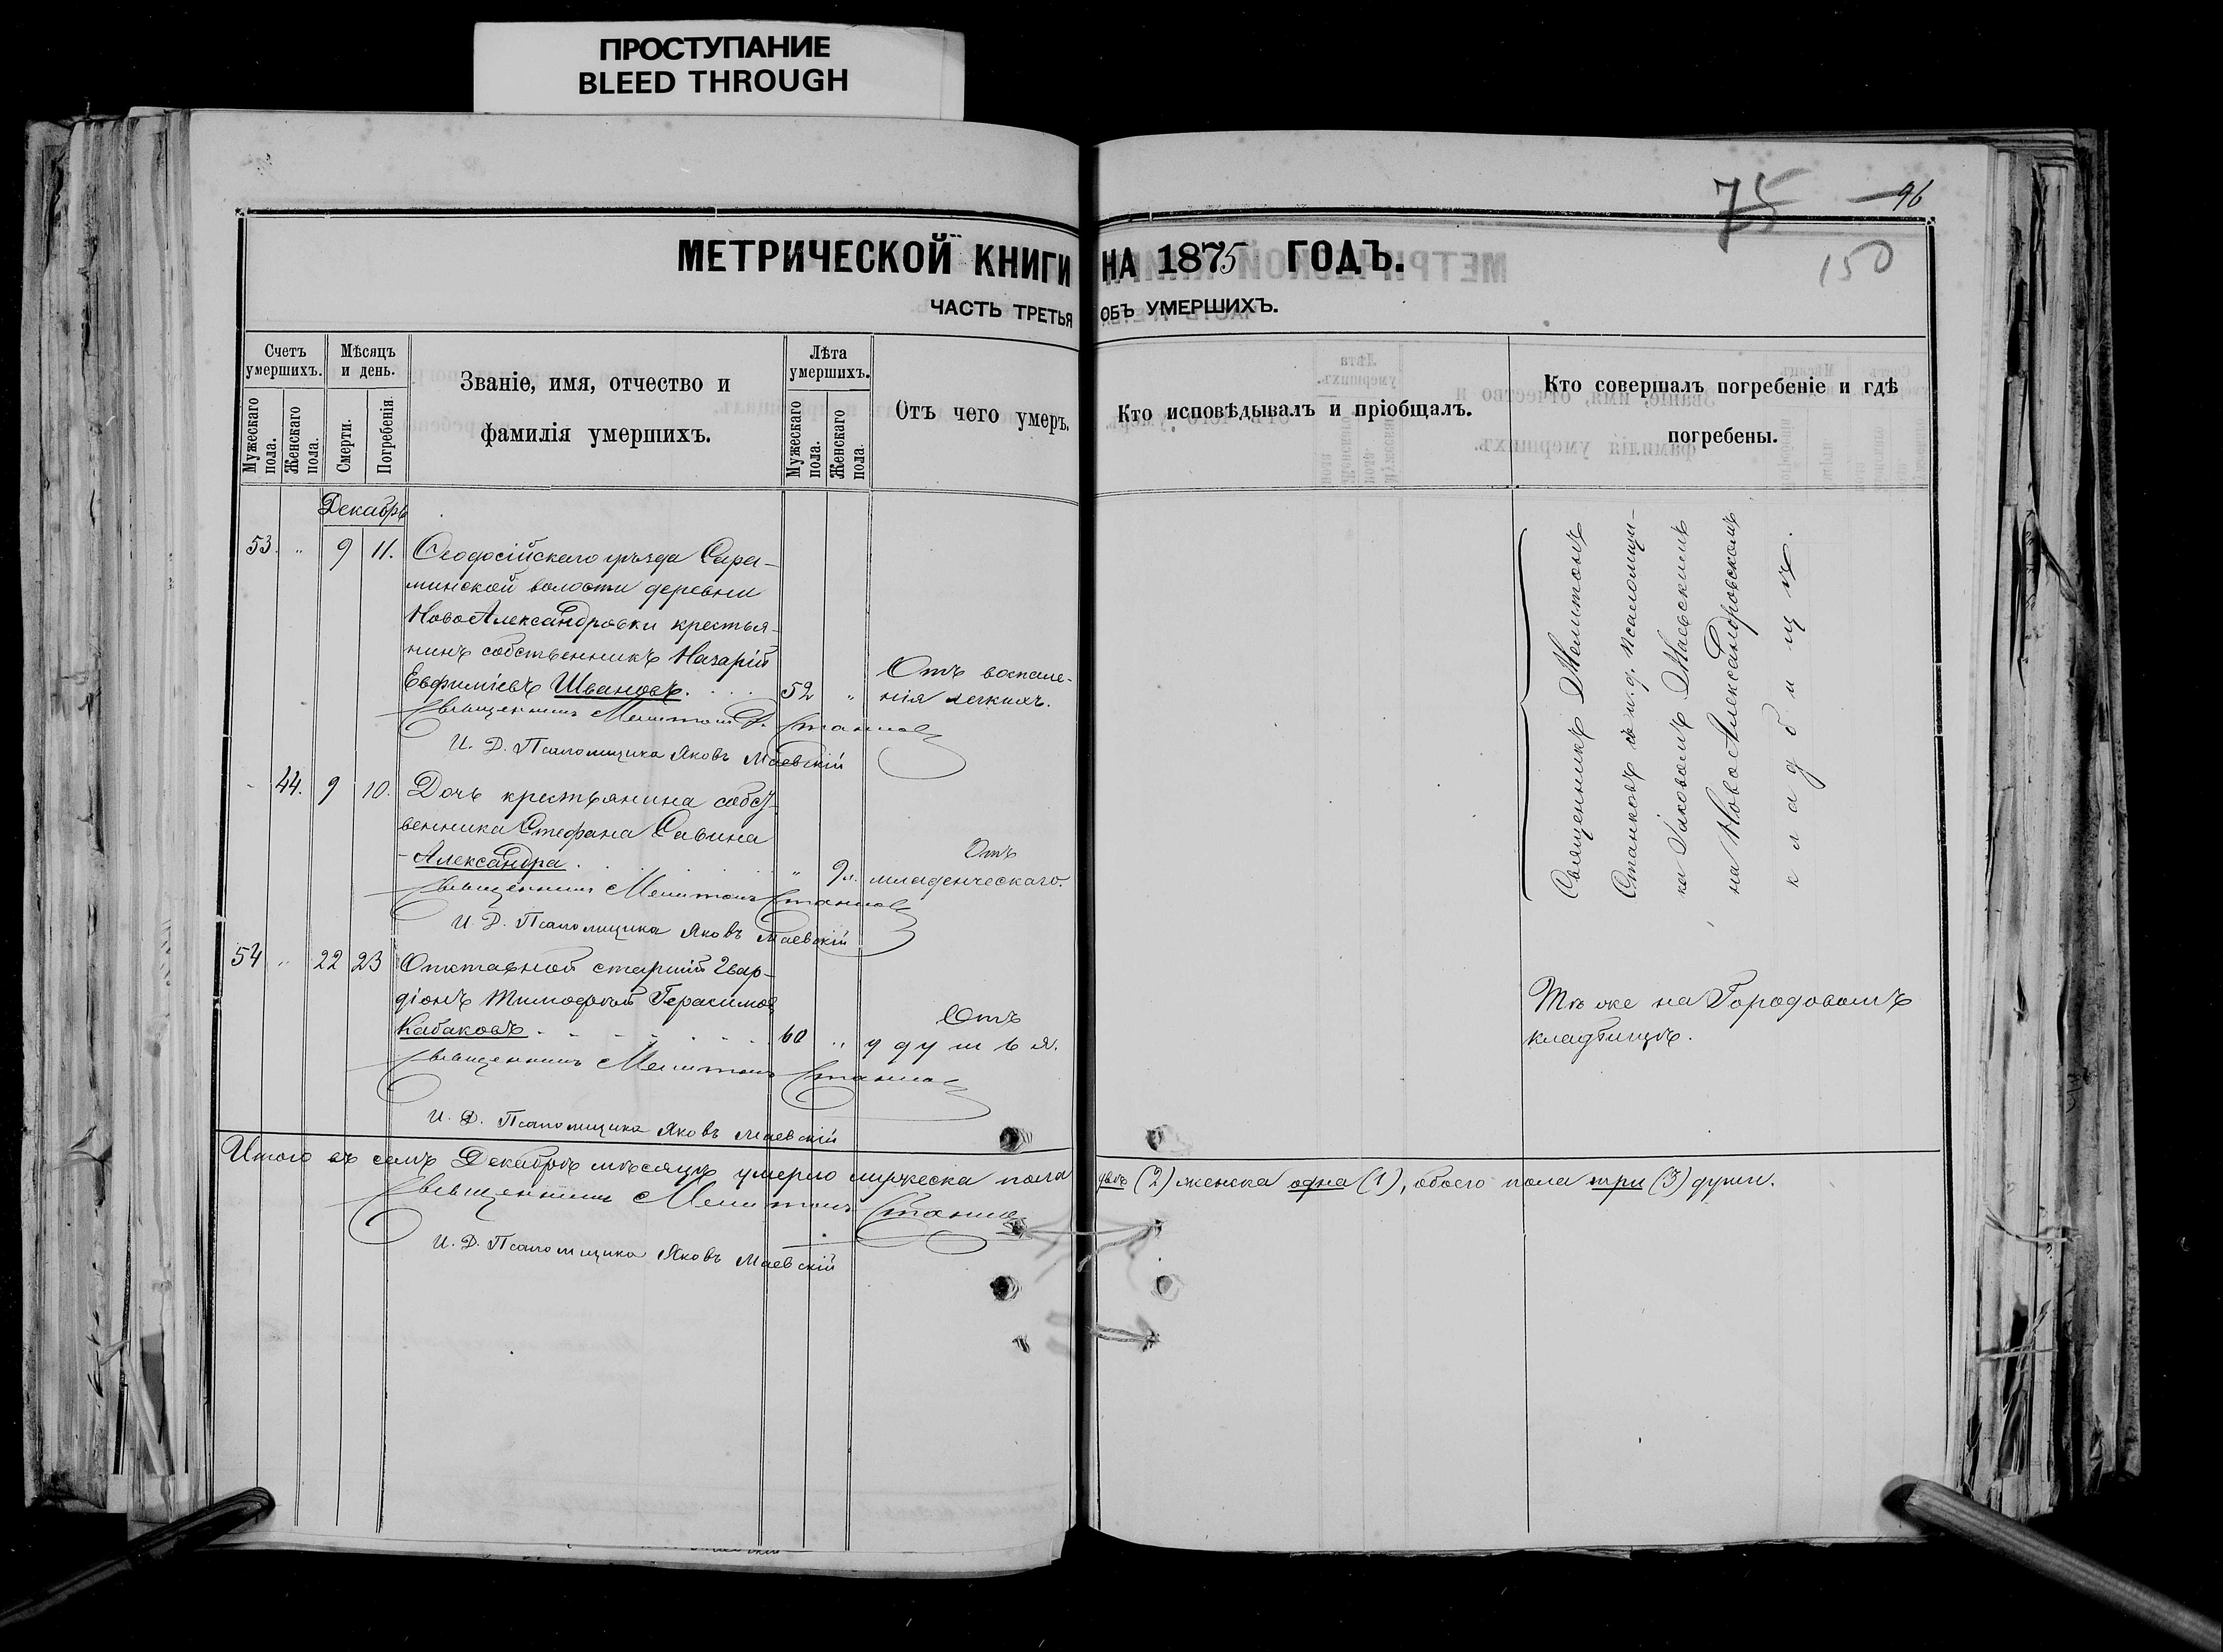 ПРОСТУПАНИЕ
BLEED THROUGH
75 96
150
МЕТРИЧЕСКОЙ КНИГИ НА 1875 ГОДЪ.
ЧАСТЬ ТРЕТЬЯ ОБЪ УМЕРШИХЪ.
Счетъ умершихъ.
Мужескаго пола.
Женскаго пола.
Мѣсяцъ и день.
Смерти.
Погребенія.
Званіе, имя, отчество и
фамилія умершихъ.
Лѣта умершихъ.
Мужескаго пола.
Женскаго пола.
Отъ чего умеръ.
Кто исповѣдывалъ и пріобщалъ.
Кто совершалъ погребеніе и гдѣ
погребены.
Декабрь
53. " 9 11. Ѳеодосійскаго уѣзда Сара-
минской волости деревни
НовоАлександровки крестья-
нинъ собственникъ Назарій
Евфиміевъ Ивановъ. 52 "
Отъ воспале-
нія легкихъ.
Священникъ Мелитонъ Станковъ
И. Д. Псаломщика Яковъ Маевскій
Священникъ Мелитонъ
Станковъ съ и. д. псаломщи-
ка Іаковомъ Маевскимъ
на НовоАлександровскомъ
кладбищѣ.
44. 9 10. Дочь крестьянина собст-
венника Стефана Савина
Александра. " 9
Отъ
младенческаго.
Священникъ Мелитонъ Станковъ
И. Д. Псаломщика Яковъ Маевскій
54 " 22 23 Отставной старшій Гвар-
діонъ Тимофей Герасимовъ
Кабаковъ 60 "
Отъ
удушья.
Тѣ же на Городовомъ
кладбищѣ.
Священникъ Мелитонъ Станковъ
И. Д. Псаломщика Яковъ Маевскій
Итого въ семъ Декабрѣ мѣсяцѣ умерло мужеска пола двѣ (2) женска одна (1), обоего пола три (3) души.
Священникъ Мелитонъ Станковъ
И. Д. Псаломщика Яковъ Маевскій